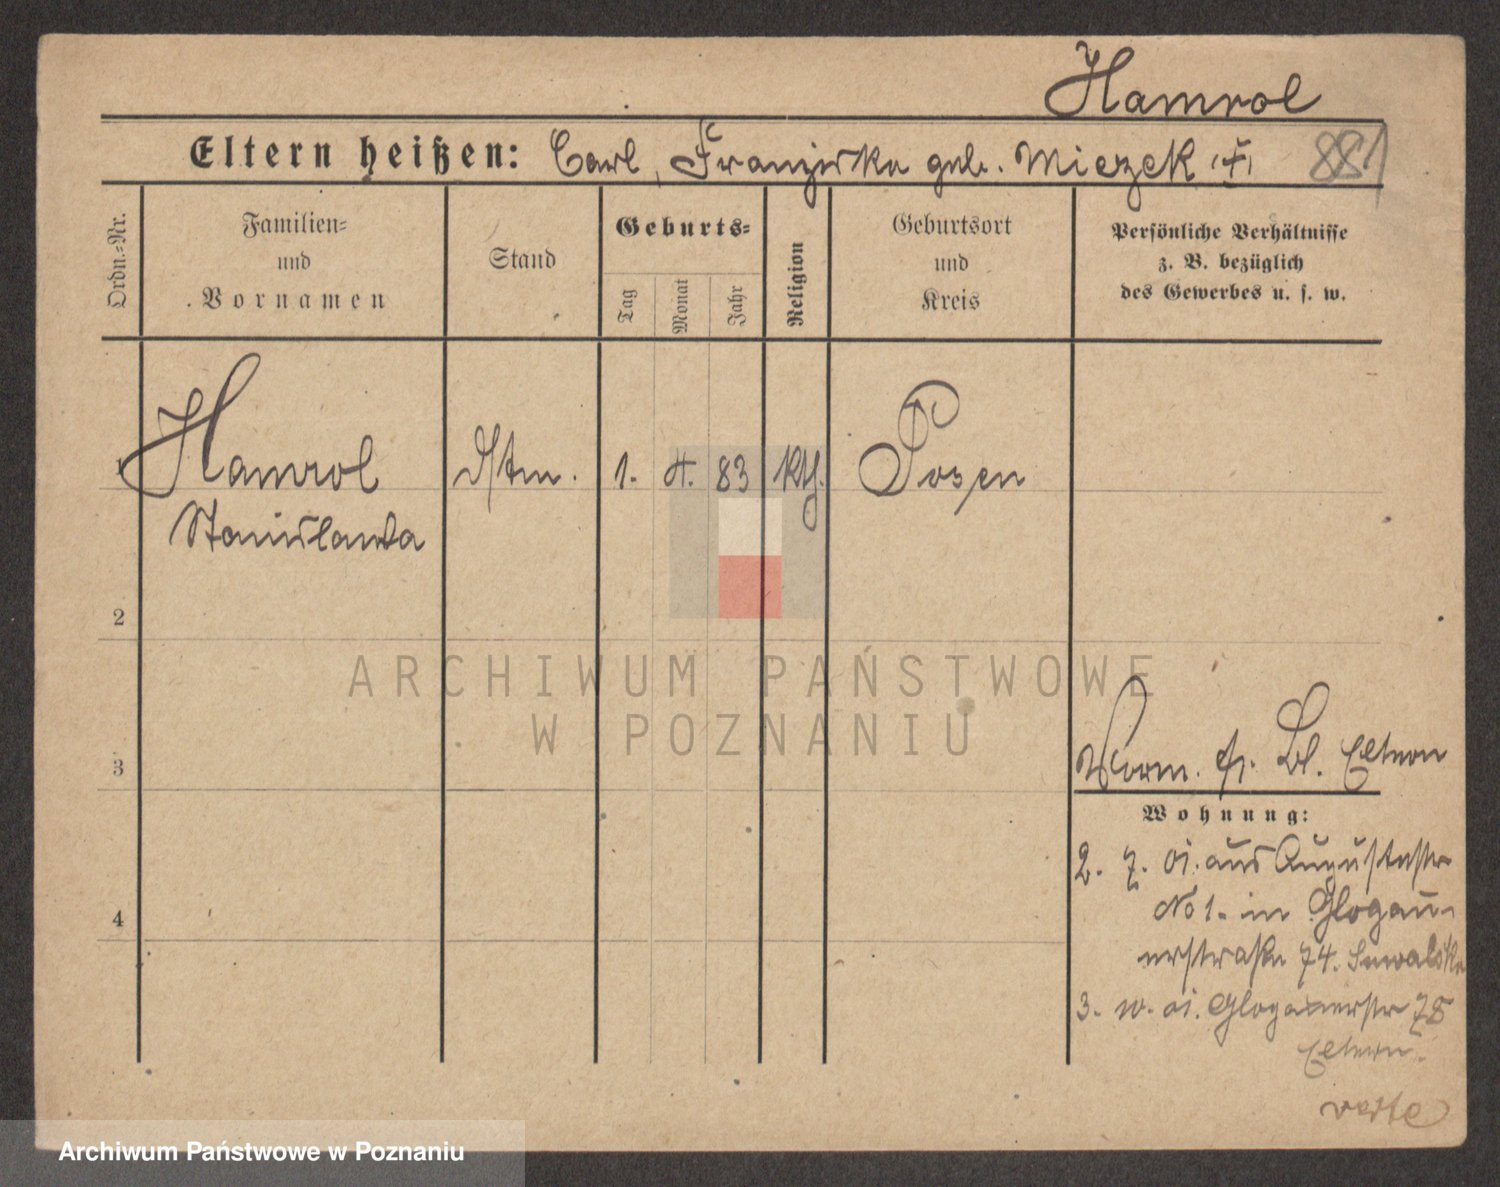 Hamrol
Eltern heißen: Carl, Franziska geb. Miezek (†)
881
Ordn.-Nr.
Familien-
und
Vornamen
Stand
Geburts-
Tag
Monat
Jahr
Religion
Geburtsort
und
Kreis
Persönliche Verhältnisse
z. B. bezüglich
des Gewerbes u. s. w.
1 Hamrol
Stanislawa
1. 4. 83 kth. Posen
2
ARCHIWUM PAŃSTWOWE
W POZNANIU
3
Eltern
Wohnung:
2. 7. 01. aus Augustastr
No 1. in Glogau-
erstraße 74.
4
3. 10. 01. Glogauerstr 78
Eltern.
verte
Archiwum Państwowe w Poznaniu